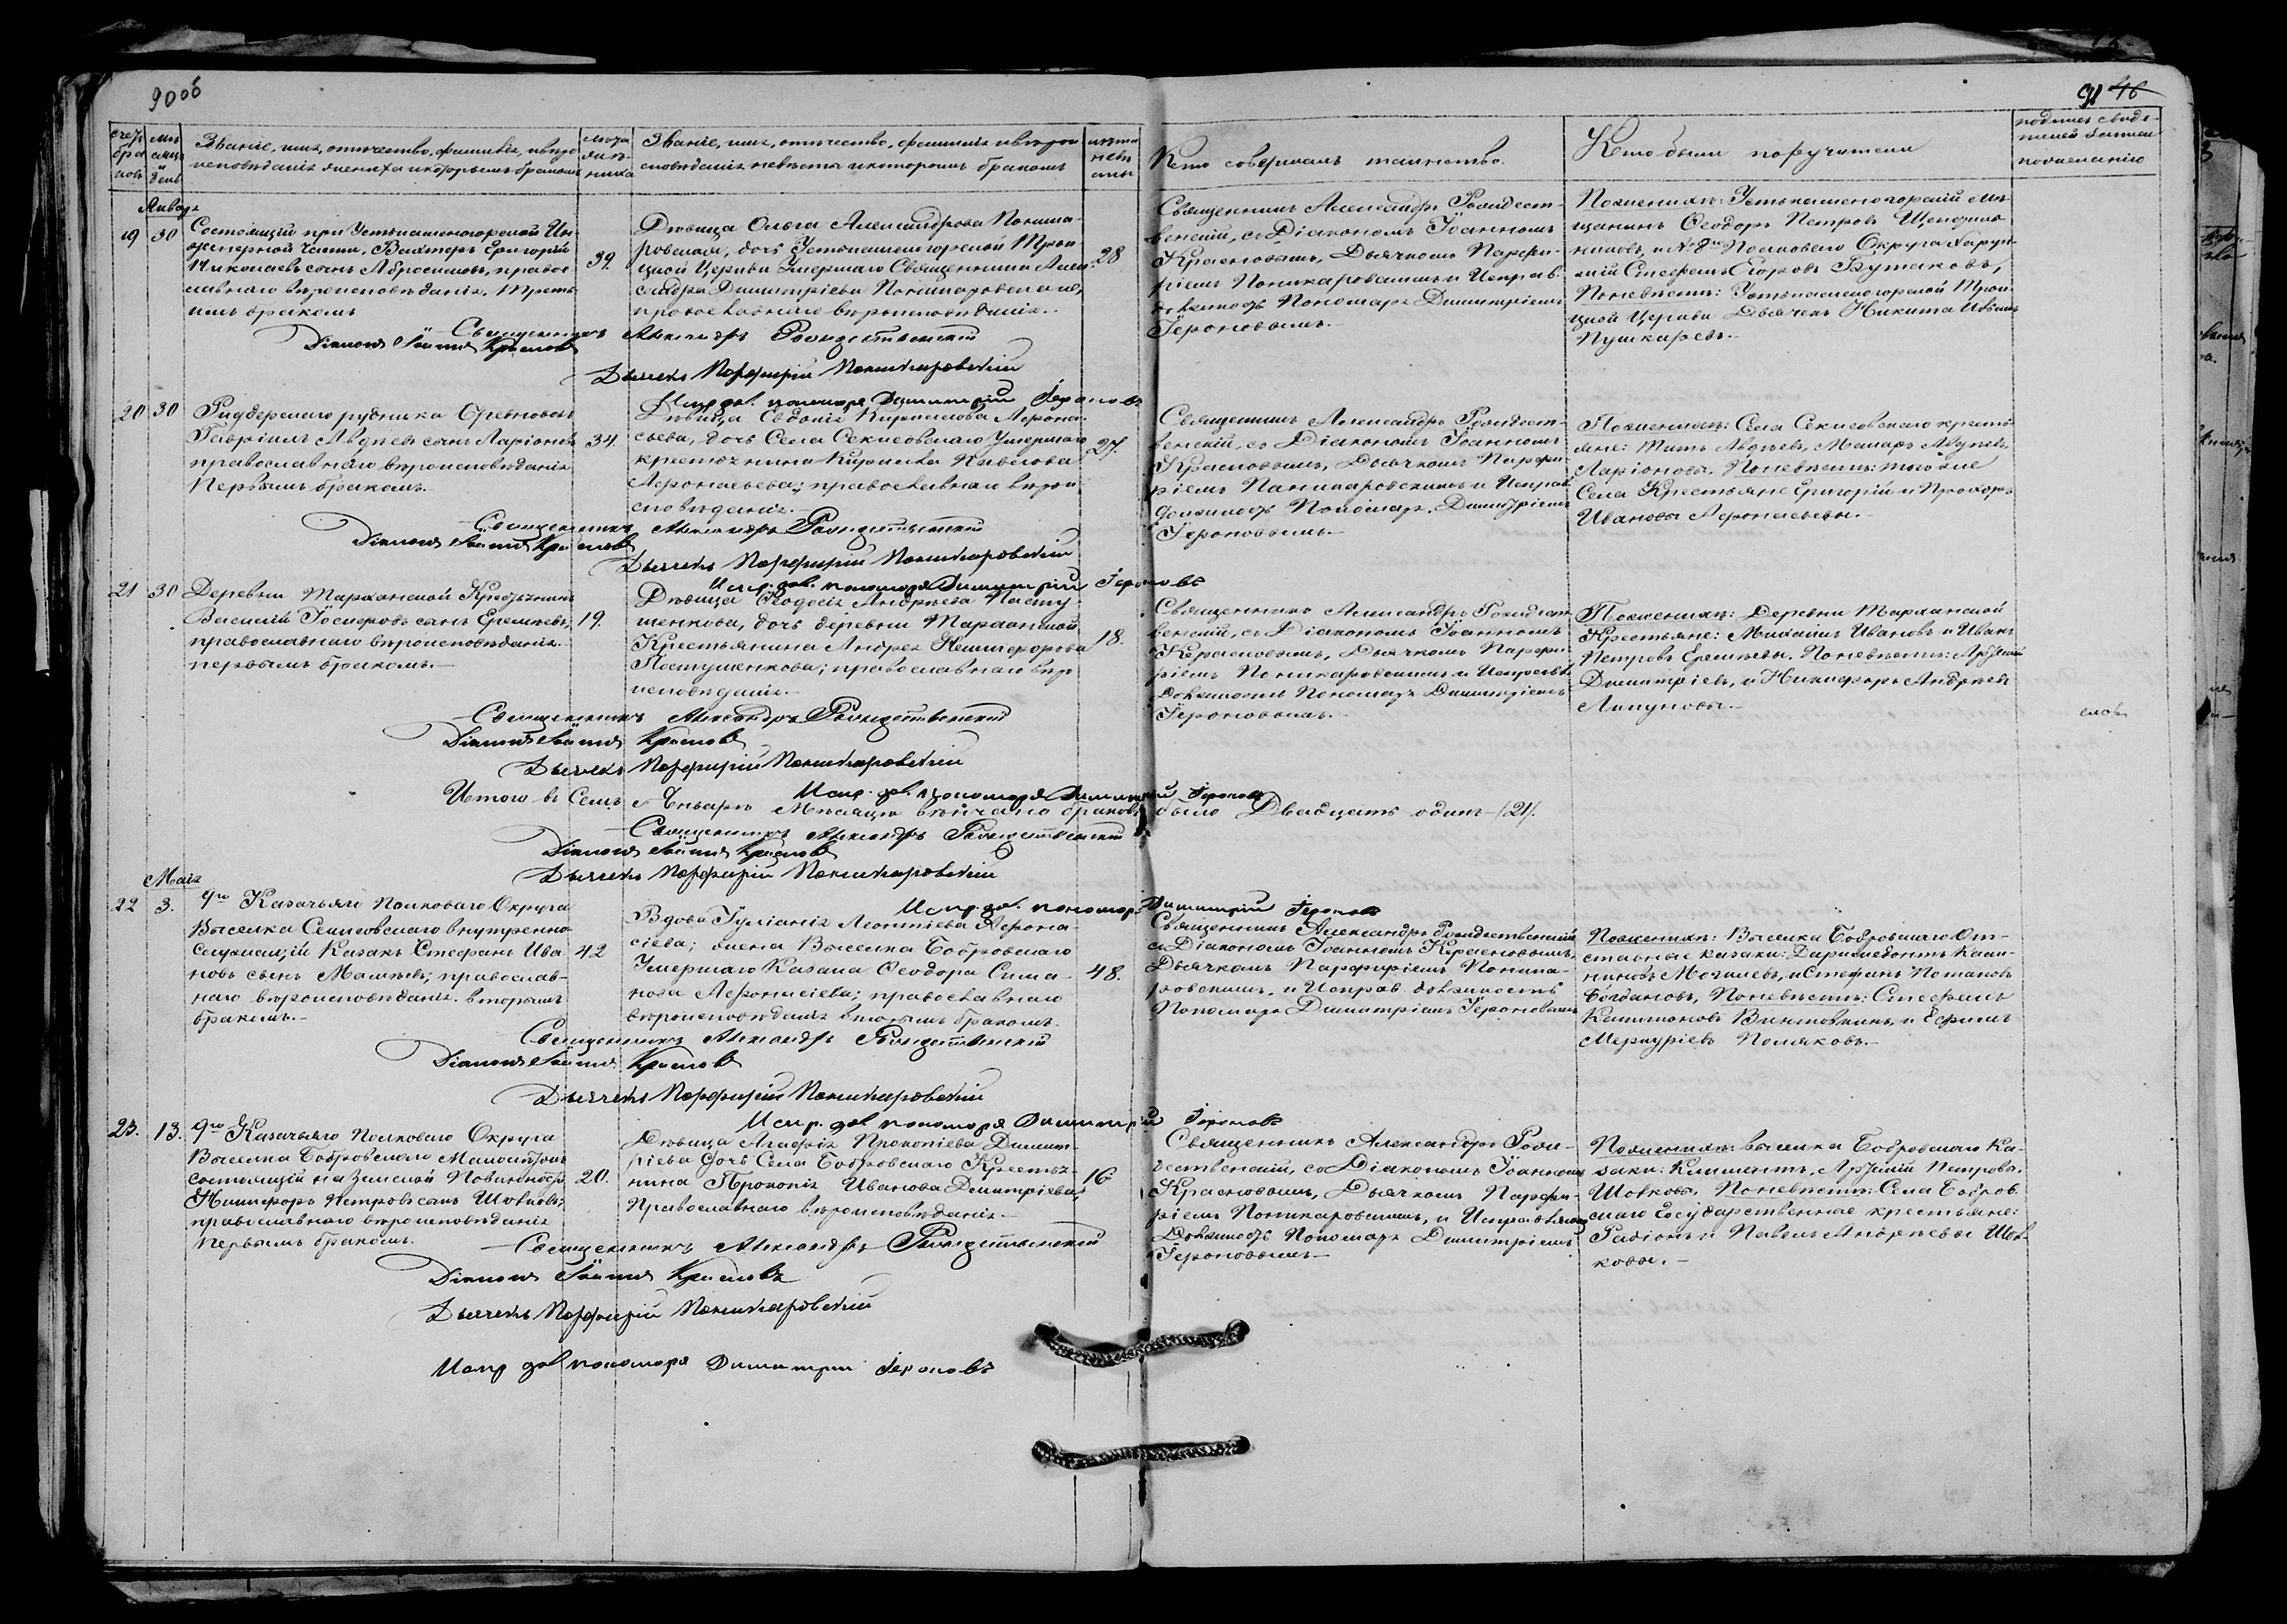 90об
91 46
счетъ браковъ
мѣсяцъ и день
Званіе, имя, отчество, фамилія, и вѣроисповѣданіе жениха и которымъ бракомъ
лѣта жениха
Званіе, имя, отчество, фамилія и вѣроисповѣданіе невѣсты и которымъ бракомъ
лѣта невѣсты
Кто совершалъ таинство.
Кто были поручители
подпись свидѣтелей записи по желанію
Январь
19 30
Состоящій при Устькаменогорской Ин-
женерной части, Вахтеръ Григорій
Николаевъ сынъ Абросимовъ, право-
славнаго вѣроисповѣданія. Треть-
имъ бракомъ
39.
Дѣвица Ольга Александрова Поники-
ровская, дочь Устькаменогорской Трои-
цкой Церкви Умершаго Священника Алек-
сандра Димитріева Поникаровскаго,
православнаго вѣроисповѣданія.
28
Священникъ Александръ Рождест-
венскій, съ Діакономъ Іоанномъ
Красновымъ, Дьячкомъ Парфи-
ріемъ Поникаровскимъ и Исправ.
должность Пономаря Димитріемъ
Героновымъ.
По женихѣ: Устькаменогорскій мѣ-
щанинъ Ѳеодоръ Петровъ
и № 8го Полковаго Округа Хорун-
жій Стефанъ Егоровъ Бутаковъ,
По невѣстѣ: Устькаменогорской Трои-
цкой Церкви Дьячекъ Никита Ивановъ
Пушкаревъ.
Священникъ Александръ Рождественскій
Діаконъ Іоаннъ Красновъ
Дьячекъ Порфирій Поникаровскій
Испр. дол. пономаря Димитрій Героновъ
20 30
Риддерскаго рудника
Гавріилъ Авдѣевъ сынъ Ларіоновъ
православнаго вѣроисповѣданія
Первымъ бракомъ.
34.
Дѣвица Евдокія Кирилова Афона-
сьева, дочь Села Секисовскаго Умершаго
крестьянина Кирилла
Афонасьева; православнаго вѣрои-
сповѣданія.
27.
Священникъ Александръ Рождест-
венскій, съ Діакономъ Іоанномъ
Красновымъ, Дьячкомъ Парфи-
ріемъ Поникаровскимъ и Исправ
должность Пономаря, Димитріемъ
Героновымъ.
По женихѣ: Села Секисовскаго кресть-
яне: Титъ Авдѣевъ, Макаръ Авдѣевъ
Ларіоновы. По невѣстѣ: того же
Села Крестьяне Григорій и Прохоръ
Ивановы Афонасьевы.
Священникъ Александръ Рождественскій
Діаконъ Іоаннъ Красновъ
Дьячекъ Порфирій Поникаровскій
Испр. дол. пономаря Димитрій Героновъ
21 30
Деревни Тарханской Крестьянинъ
Василій Іосифовъ сынъ Еремѣевъ,
православнаго вѣроисповѣданія.
первымъ бракомъ.
19.
Дѣвица Ѳеодосія Андрѣева Пасту-
шенкова, дочь деревни Тарханской
Крестьянина Андрея Никифорова
Пастушенкова; православнаго вѣро-
исповѣданія.
18.
Священникъ Александръ Рождест
венскій, съ Діакономъ Іоанномъ
Красновымъ, Дьячкомъ Парфи-
ріемъ Поникаровскимъ и Исправл.
должность Пономаря Димитріемъ
Героновымъ.
По женихѣ: Деревни Тарханской
Крестьяне: Михаилъ Ивановъ и Иванъ
Петровъ Еремѣевы. По невѣстѣ: Артемій
Димитріевъ, и Никифоръ Андреевъ
Лапуновы.
Священникъ Александръ Рождественскій
Діаконъ Іоаннъ Красновъ
Дьячекъ Порфирій Поникаровскій
Испр. дол. пономаря Димитрій Героновъ
Итого въ Семъ Январѣ Мѣсяцѣ вѣнчано браковъ было Двадцать одинъ /21/.
Священникъ Александръ Рождественскій
Діаконъ Іоаннъ Красновъ
Дьячекъ Порфирій Поникаровскій
Испр. дол. пономаря Димитрій Героновъ
Маія
22 3.
9го Казачьяго Полковаго Округа
Выселка Секисовскаго внутренно
служащій Казакъ Стефанъ Ива-
новъ сынъ православ-
наго вѣроисповѣданія. вторымъ
бракомъ.
42
Вдова Іуліанія Леонтіева Афона-
сіева; жена Выселка Бобровскаго
Умершаго Казака Ѳеодора Сима-
нова Афонасіева; православнаго
вѣроисповѣданія вторымъ бракомъ.
48.
Священникъ Александръ Рождественскій
съ Діакономъ Іоанномъ Красновымъ,
Дьячкомъ Парфиріемъ Поника-
ровскимъ, и Исправ. должность
Пономаря Димитріемъ Героновымъ
По женихѣ: Выселка Бобровскаго От-
ставные казаки:
Могилевъ, и Стефанъ Потаповъ
Богдановъ, По невѣстѣ: Стефанъ
Винтовкинъ, и Ефимъ
Меркуріевъ Поляковъ.
Священникъ Александръ Рождественскій
Діаконъ Іоаннъ Красновъ
Дьячекъ Порфирій Поникаровскій
Испр. дол пономаря Димитрій Героновъ
23. 13.
9го Казачьяго Полковаго Округа
Выселка Бобровскаго Малолѣтокъ
состоящій на Земской Повинности
Никифоръ Петровъ сынъ Шолковъ;
православнаго вѣроисповѣданія
первымъ бракомъ.
20.
Дѣвица Агафія Прокопіева Димит-
ріева дочь Села Бобровскаго Крестья-
нина Прокопія Иванова Димитріева
Православнаго вѣроисповѣданія.
16
Священникъ Александръ Рож-
дественскій, со Діакономъ Іоанномъ
Красновымъ, Дьячкомъ Парфи-
ріемъ Поникаровскимъ, и Исправляющ
Должность Пономаря Димитріемъ
Героновымъ.
По женихѣ: выселка Бобровскаго Ка-
заки: Климентъ, Артемій Петровы.
Шолковы. По невѣстѣ: Села Бобров
скаго Государственные крестьяне:
Радіонъ и Павелъ Андреевы Шол-
ковы.
Священникъ Александръ Рождественскій
Діаконъ Іоаннъ Красновъ
Дьячекъ Порфирій Поникаровскій
Испр дол пономаря Димитрій Героновъ